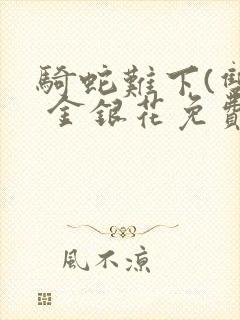 騎蛇難下(雙
金銀花免費
風不涼